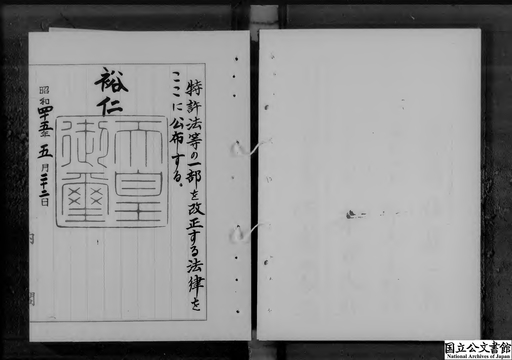 特許法等の一部を改正する法律を
ここに公布する。
裕仁
天皇
御璽
昭和四十五年五月二十二日
国立公文書館
National Archives of Japan